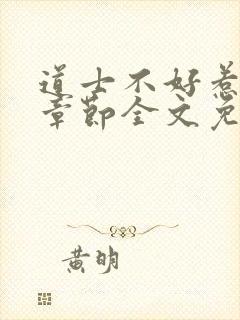 道士不好惹
章節全文免
黃明